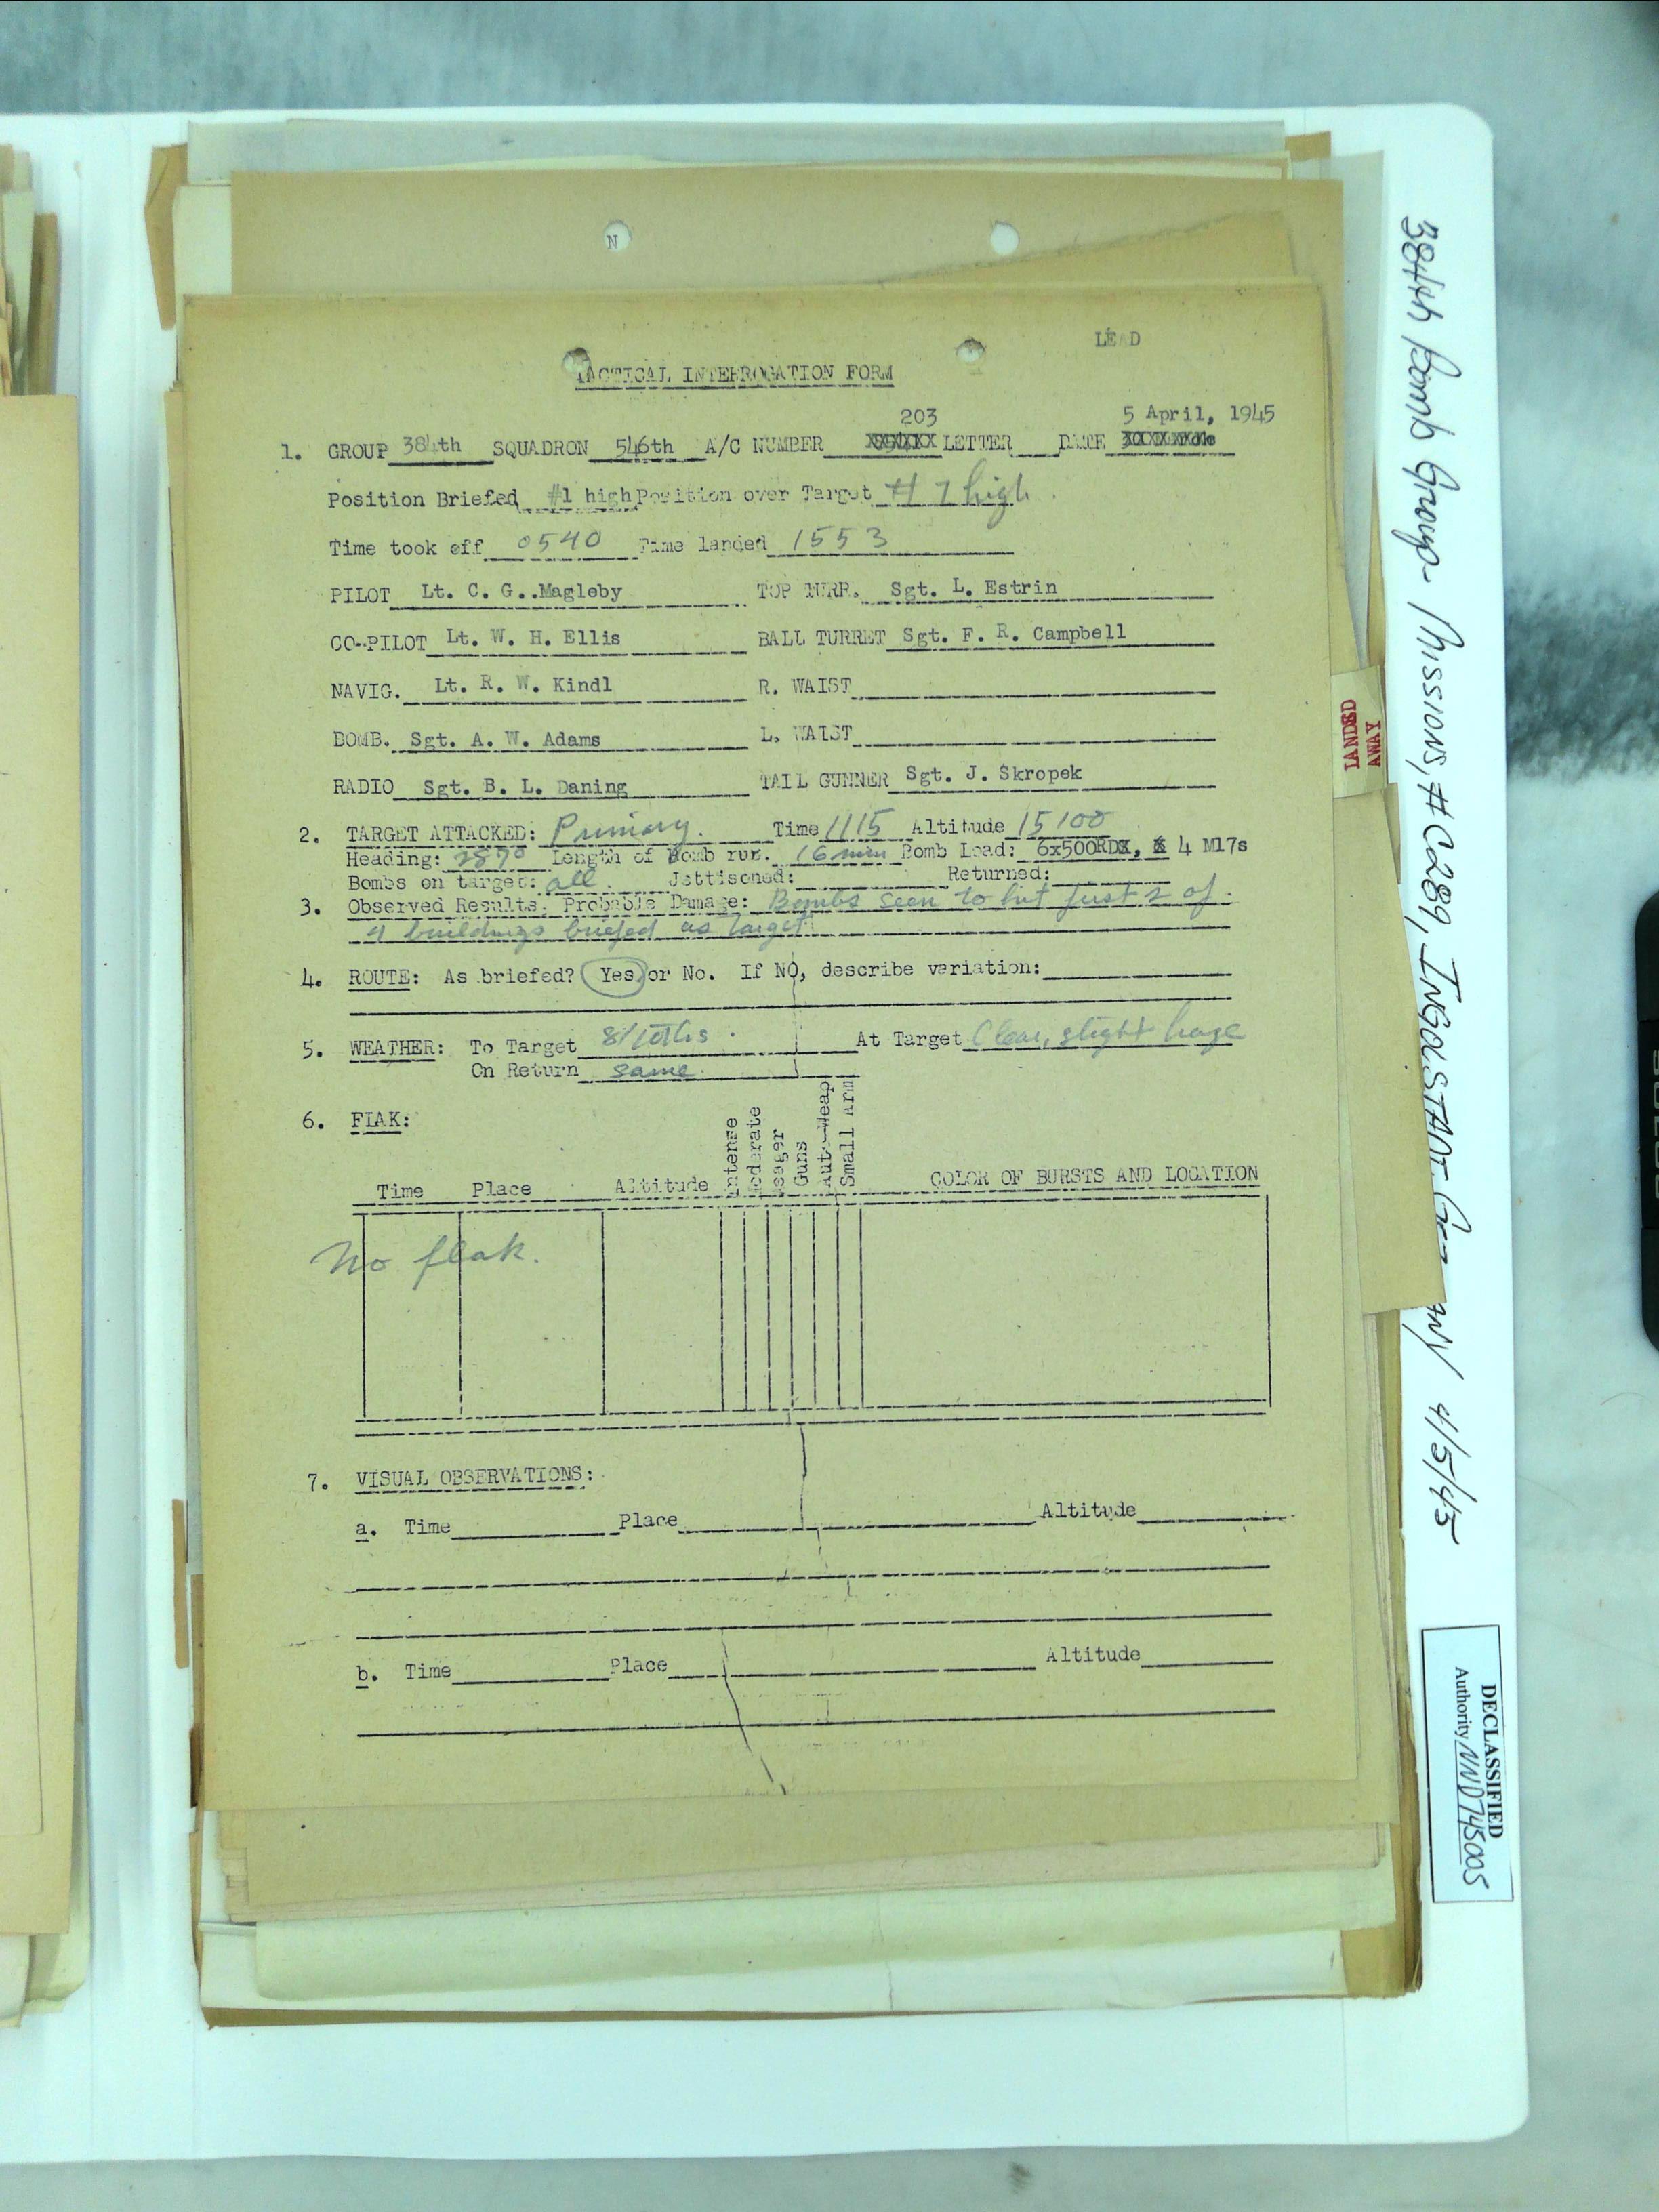 N
LEAD
TACTICAL INTERROGATION FORM
203 5 April, 1945
1. GROUP 384th SQUADRON 546th A/C NUMBER LETTER DATE
Position Briefed #1 high Position over Target # 1 high.
Time took off 0540 Time landed 1553
PILOT Lt. C. G..Magleby TOP TURR. Sgt. L. Estrin
CO-PILOT Lt. W. H. Ellis BALL TURRET Sgt. F. R. Campbell
NAVIG. Lt. R. W. Kindl R. WAIST
BOMB. Sgt. A. W. Adams L. WAIST
RADIO Sgt. B. L. Daning TAIL GUNNER Sgt. J. Skropek
2. TARGET ATTACKED: Primary. Time 1115 Altitude 15100
Heading: 287° Length of Bomb run. 16 min Bomb Load: 6x500RDX, 4 M17s
Bombs on target: all. Jettisoned: Returned:
3. Observed Results, Probable Damage: Bombs seen to hit just s of
4 buildings briefed as target.
4. ROUTE: As briefed? Yes or No. If NO, describe variation:
5. WEATHER: To Target 8/10ths. At Target Clear, slight haze
On Return same.
6. FLAK:
Time Place Altitude Intense Moderate Meager Guns Auto-Weap Small Arm COLOR OF BURSTS AND LOCATION
No flak.
7. VISUAL OBSERVATIONS:
a. Time Place Altitude
b. Time Place Altitude
LANDED
AWAY
384th Bomb Group- Missions, # 0289, INGOLSTADT Germany 4/5/45
DECLASSIFIED
Authority NND745005